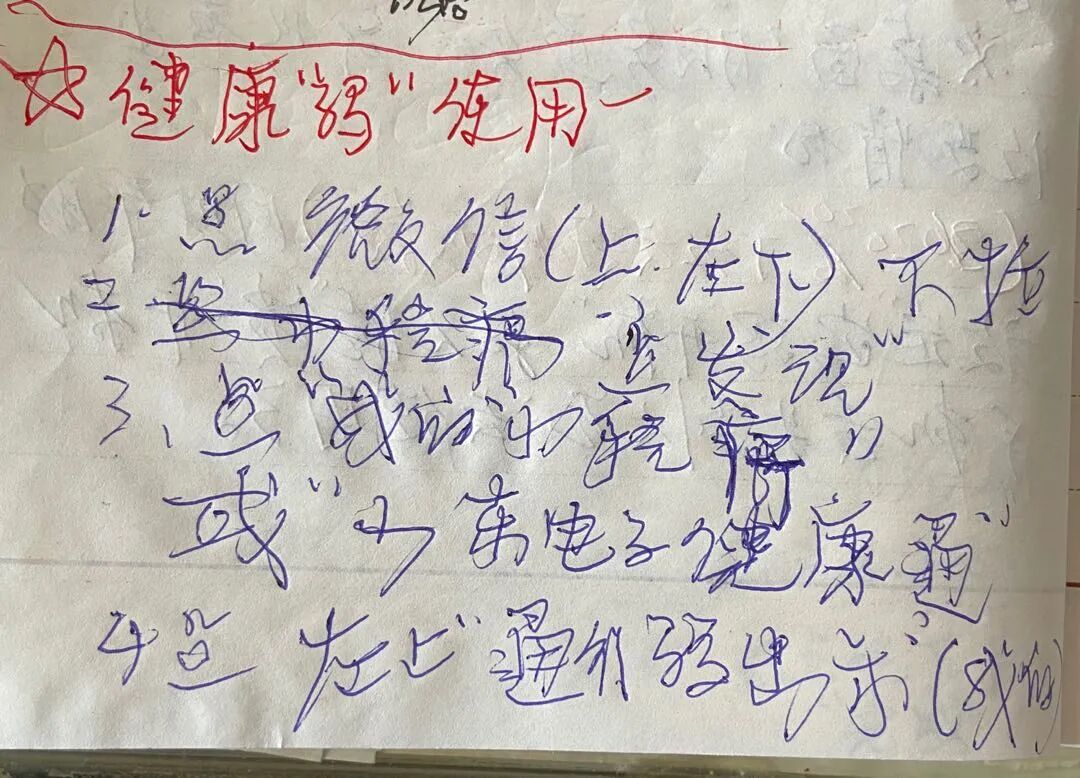 ☆健康"码"使用一
1.点微信(上.左下)下拉
2 点小程序 点"发现"
3、点"我的小程序"
或"山东电子健康通"
4点左上"通行码出示(我的)